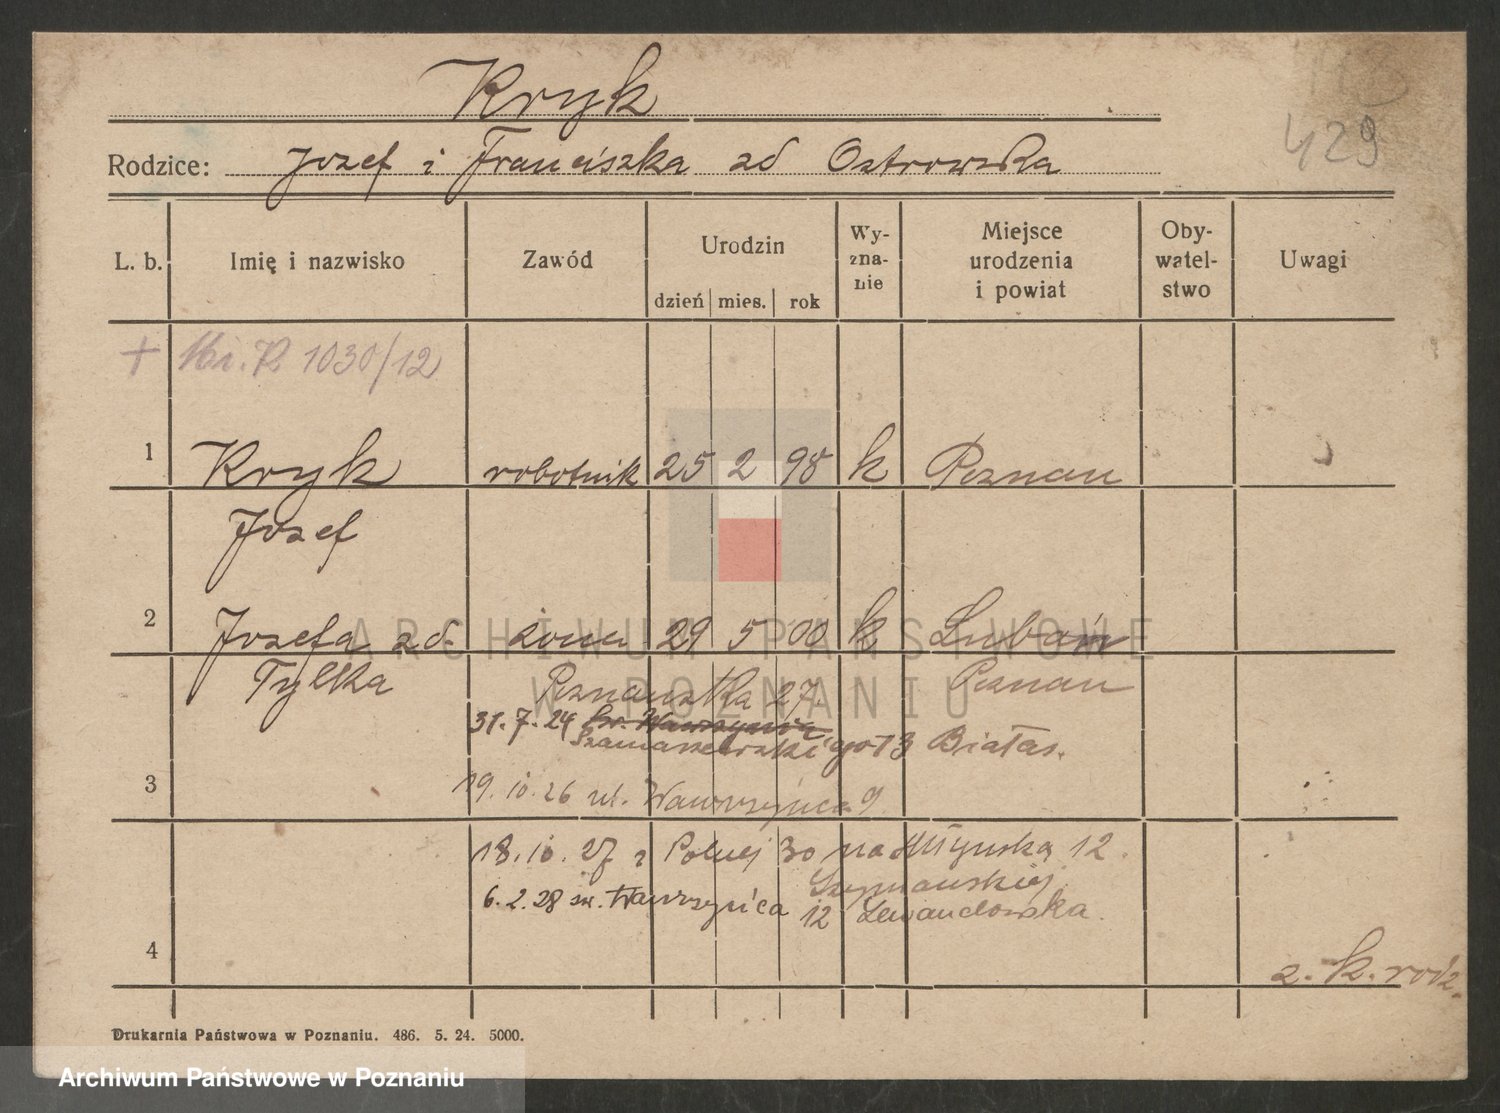 Kryk
429
Rodzice: Jozef i Franciszka zd Ostrowska
L. b. Imię i nazwisko Zawód Urodzin dzień mies. rok Wy-zna-nie Miejsce urodzenia i powiat Oby-watel-stwo Uwagi
+ R 1030/12
1 Kryk robotnik 25 2 98 k Poznan
Jozef
2 Jozefa zd. żona 29 5 00 k Luboń
Tylka Poznan
Poznanska 27.
31. 7. 24 św. Wawrzyńca
Szamarzewskiego 13 Białas.
3 19. 10. 26 ul. Wawrzyńca 9
18. 10. 27 z Polnej 30 na Młyńską 12.
Szymanskiej
6. 2. 28 św. Wawrzyńca 12 Lewandowska.
4
z. k. rodz.
Drukarnia Państwowa w Poznaniu. 486. 5. 24. 5000.
ARCHIWUM PAŃSTWOWE
W POZNANIU
Archiwum Państwowe w Poznaniu